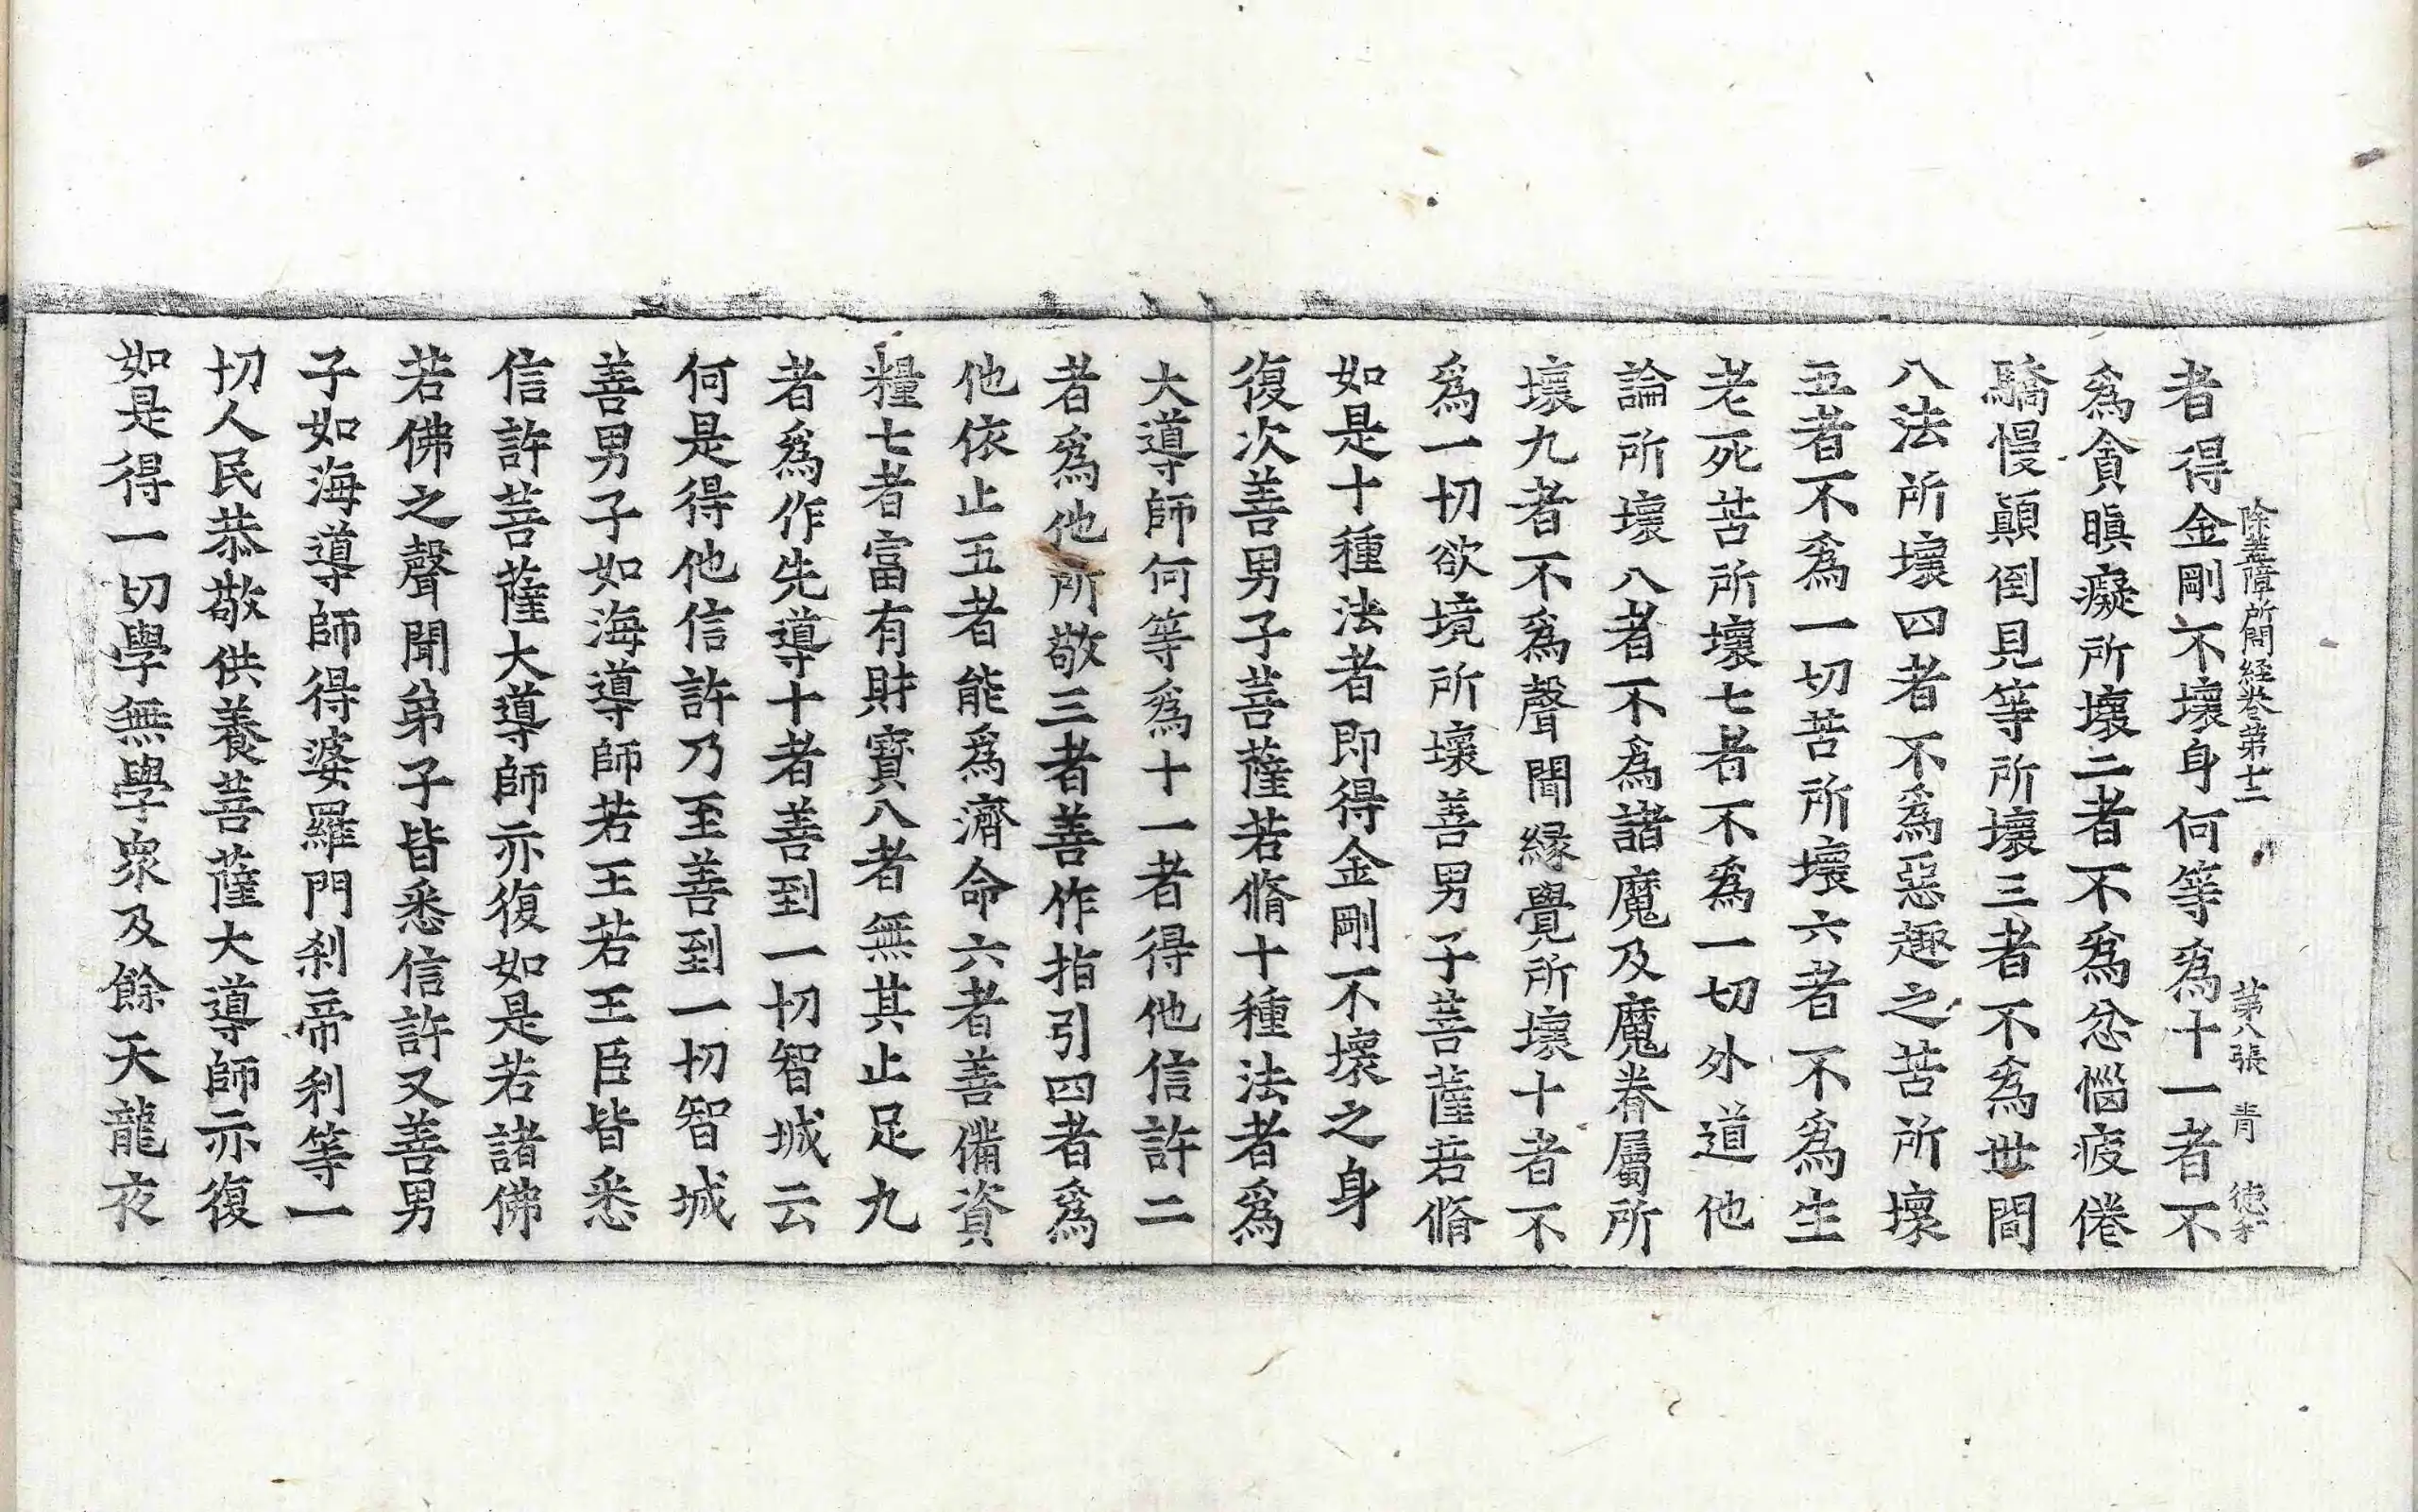 除蓋障所問経卷第十二 第八張 青 徳才
者得金剛不壞身何等為十一者不
為貪瞋癡所壞二者不為忿惱疲倦
驕慢顛倒見等所壞三者不為世間
八法所壞四者不為惡趣之苦所壞
五者不為一切苦所壞六者不為生
老死苦所壞七者不為一切外道他
論所壞八者不為諸魔及魔眷屬所
壞九者不為聲聞縁覺所壞十者不
為一切欲境所壞善男子菩薩若脩
如是十種法者即得金剛不壞之身
復次善男子菩薩若脩十種法者為
大導師何等為十一者得他信許二
者為他所敬三者善作指引四者為
他依止五者能為濟命六者善備資
糧七者富有財寶八者無其止足九
者為作先導十者善到一切智城云
何是得他信許乃至善到一切智城
善男子如海導師若王若王臣皆悉
信許菩薩大導師亦復如是若諸佛
若佛之聲聞弟子皆悉信許又善男
子如海導師得婆羅門剎帝利等一
切人民恭敬供養菩薩大導師亦復
如是得一切學無學眾及餘天龍夜